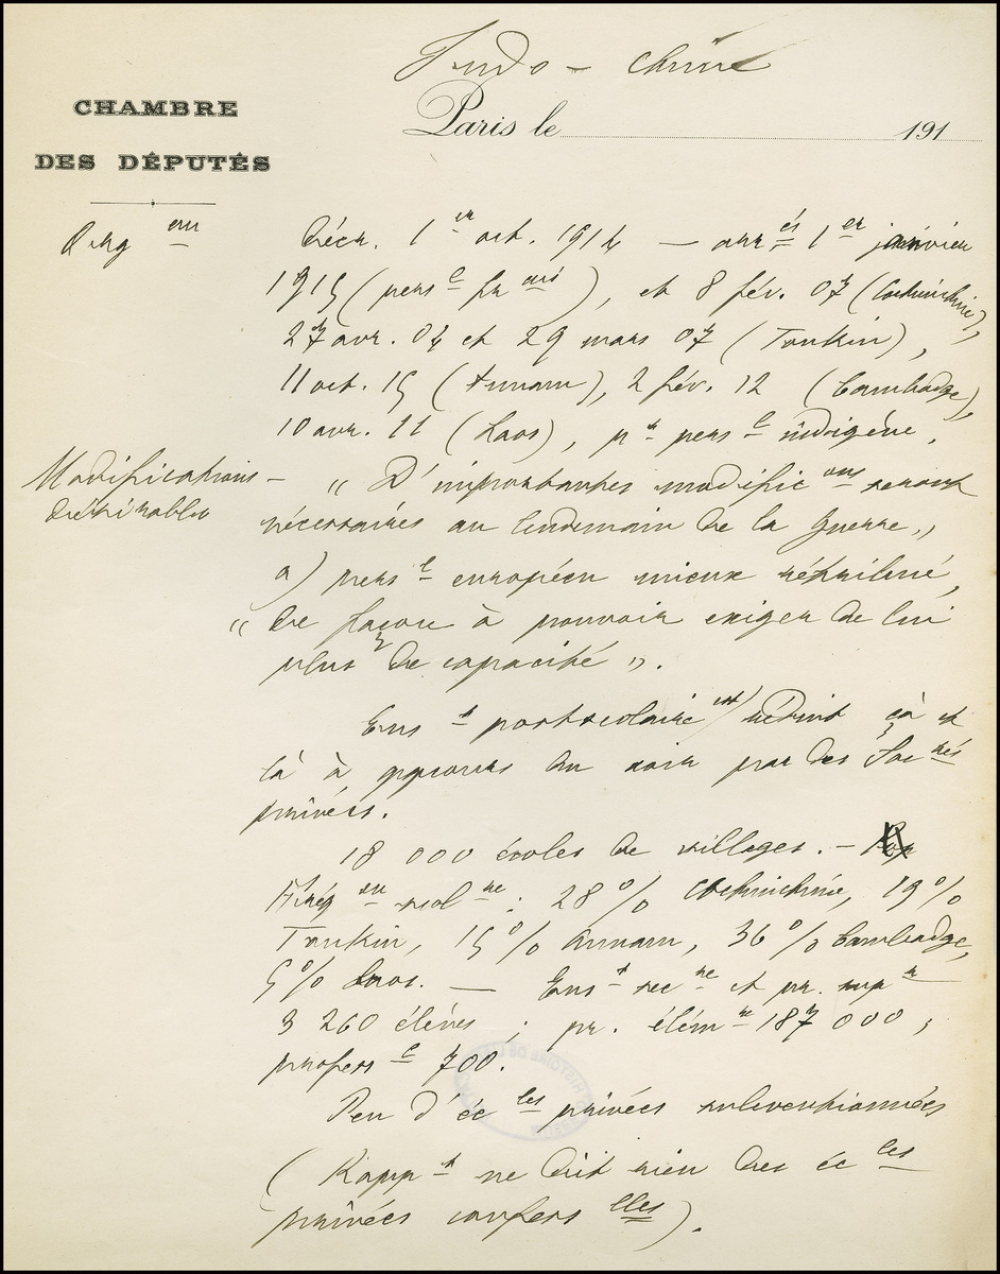 Indo - Chine
CHAMBRE
DES DÉPUTÉS
Paris le 191
Orig on
Décr. 1er oct. 1914 — arrés 1er janvier
1915 (persl frais), et 8 fév. 07 (Cochinchine),
27 avr. 04 et 29 mars 07 (Tonkin),
11 oct. 15 (Annam), 2 fév. 12 (Cambodge),
10 avr. 11 (Laos), pr persl indigène.
Modifications
désirables
— " D'importantes modificons seront
nécessaires au lendemain de la guerre "
a) persl européen mieux rétribué,
" de façon à pouvoir exiger de lui
plus de capacité ".
Enst postscolaire est réduit çà et
là à qq cours du soir par des Soctés
privées.
18 000 écoles de villages. —
Fréqon scolre : 28 % Cochinchine, 19 %
Tonkin, 15 % Annam, 36 % Cambodge,
5 % Laos. — Enst secre et pr. supr
3 260 élèves ; pr. élémre 187 000 ;
profess l 700.
Peu d'écles privées subventionnées
(Rappt ne dit rien des écles
privées confesslles).